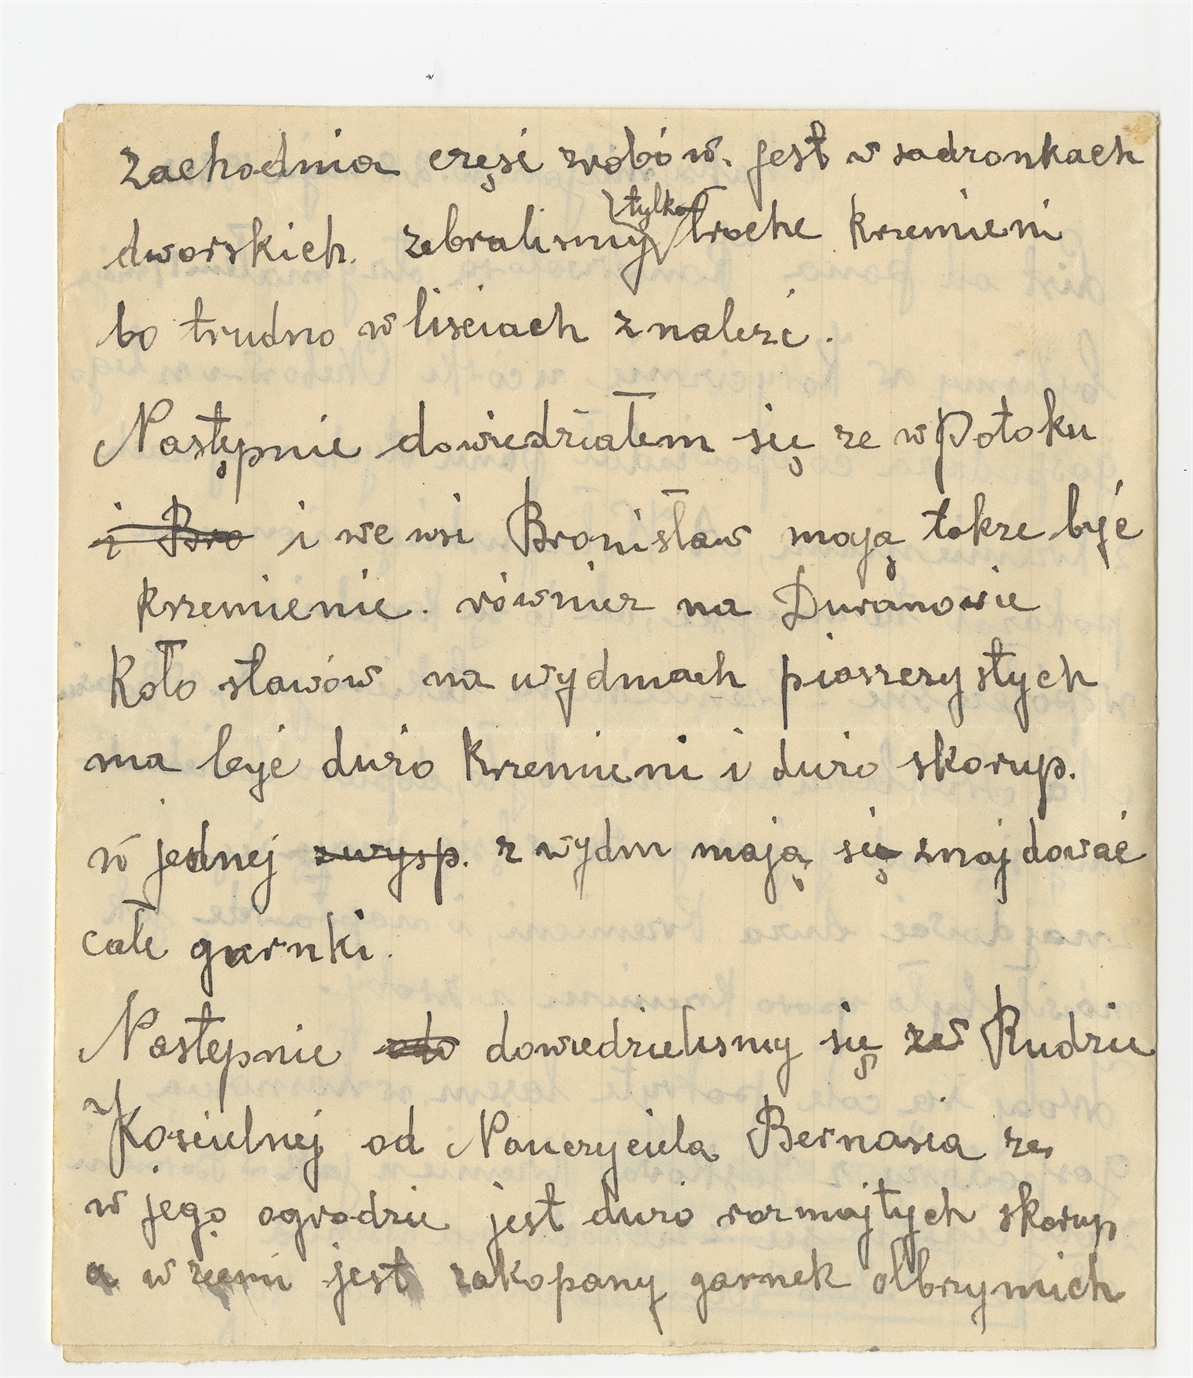 zachodnia częsi zrobów. jest w sadzonkach
dworskich. zebralismy tylko troche krzemieni
bo trudno w lisciach znalezc.
Nastąpnie dowiedziałem się ze w Potoku
i Bro i we wsi Bronisław mają takze być
krzemienie. równiez na Duranowie
Koło stawów na wydmach piaszczystych
ma być duzo krzemieni i duzo skorup.
w jednej z wysp. z wydm mają się znajdować
całe garnki.
Nastepnie dowiedzielismy się ze w Rudzie
Koscielnej od Nauczyciela Bernasia ze
w jego ogrodzie jest duzo rozmajtych skorup
a w zięmi jest zakopany garnek olbrzymich